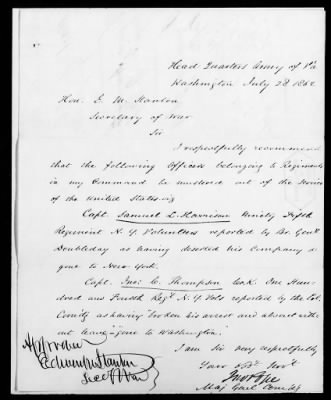 Head Quarters Army of Va
Washington July 28 1862
Hon. E. M. Stanton
Secretary of War
Sir
I respectfully recommend
that the following Officers belonging to Regiments
in my Command be mustered out of the service
of the United States viz
Capt. Samuel L. Harrison Ninety Fifth
Regiment N. Y. Volunteers reported by Br. Genl
Doubleday as having deserted his Company &
gone to New York.
Capt. Jno: C. Thompson Co. K. One Hun-
dred and Fourth Regt N. Y. Vols reported by the Col.
Comdg as having "broken his arrest and absent with-
out leave" gone to Washington."
I am Sir very respectfully
Your obt. Servt.
Jno Pope
Maj Genl Comdg
Approved
Edwin M Stanton
Sec of War